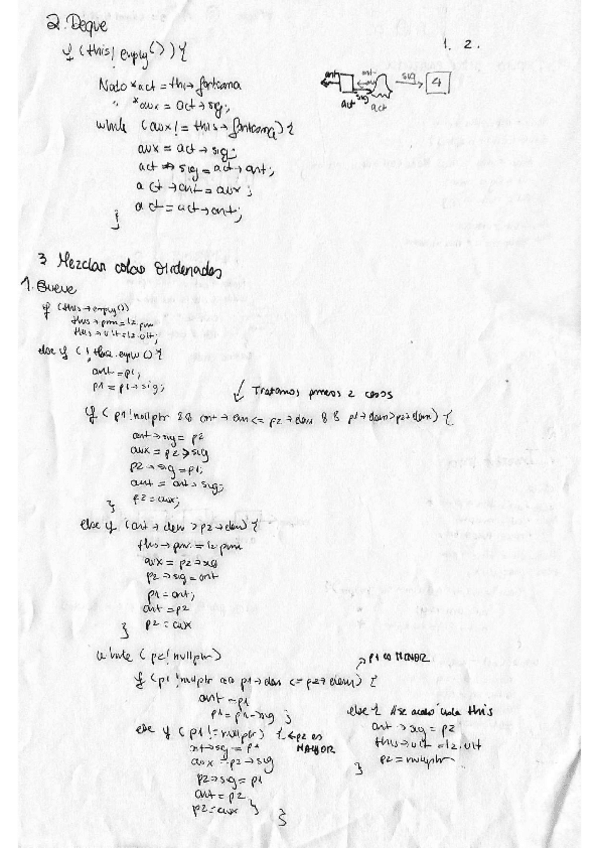 2. Deque
if (this! empty()) {
Nodo *act = this→fantasma
" *aux = act→sig;
while (aux != this→fantasma) {
aux = act→sig;
act→sig = act→ant;
act→ant = aux;
act = act→ant;
}
1. 2.
ant ant sig 4
sig
act act
3 Mezclar colas Ordenadas
1. Queue
if (this→empty())
this→prim = l2.prim
this→ult = l2.ult;
else if (!this.empty()) {
ant = p1;
p1 = p1→sig;
Tratamos primeros 2 casos
if (p1 != nullptr && ant→elem <= p2→elem && p1→elem > p2→elem) {
ant→sig = p2
aux = p2→sig
p2→sig = p1;
ant = ant→sig;
p2 = aux;
}
else if (ant→elem > p2→elem) {
this→prim = l2.prim
aux = p2→sig
p2→sig = ant
p1 = ant;
ant = p2
p2 = aux
}
while (p2 != nullptr)
p1 es MENOR
if (p1 != nullptr && p1→elem <= p2→elem) {
ant = p1
p1 = p1→sig;
else if (p1 != nullptr) { p2 es
MAYOR
ant→sig = p2
aux = p2→sig
p2→sig = p1
ant = p2
p2 = aux }
}
else { Se acabó cola this
ant→sig = p2
this→ult = l2.ult
p2 = nullptr
}